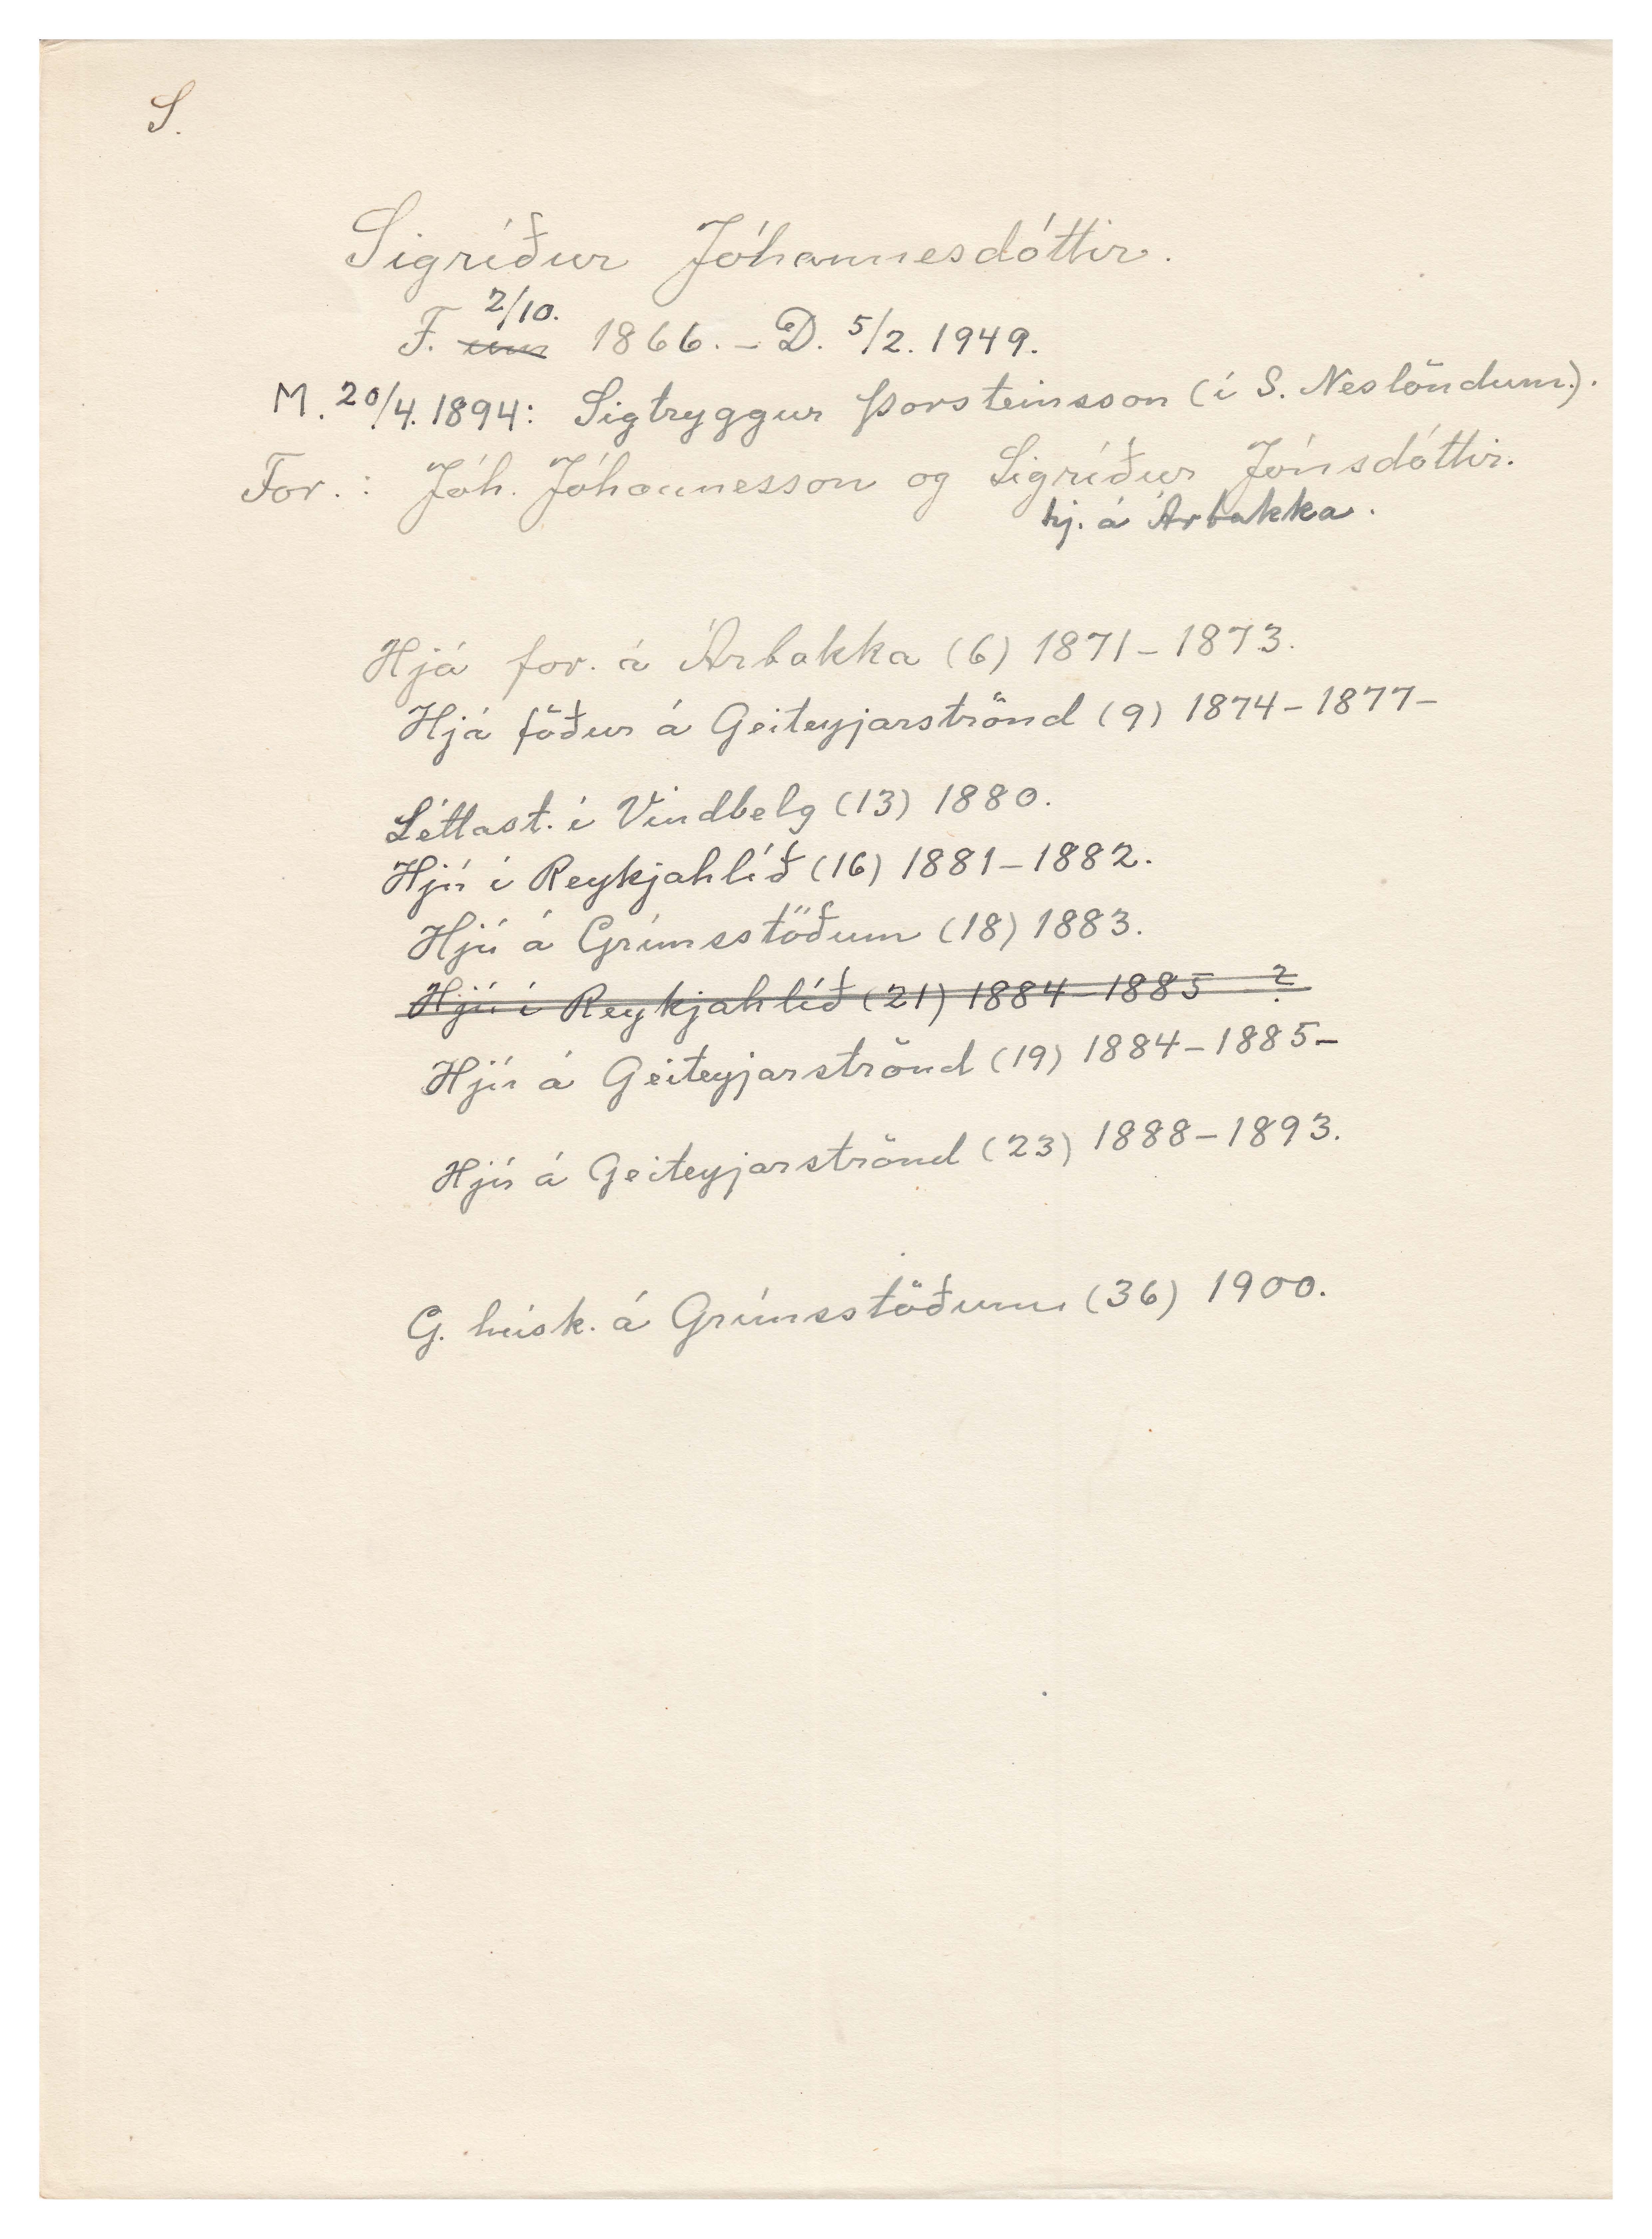 S.
Sigríður Jóhannesdóttir.
2/10.
F. um 1866. – D. 5/2. 1949.
M. 20/4. 1894: Sigtryggur Þorsteinsson (í S. Neslöndum).
For.: Jóh. Jóhannesson og Sigríður Jónsdóttir.
hj. á Árbakka.
Hjá for. á Árbakka (6) 1871–1873.
Hjá föður á Geiteyjarströnd (9) 1874–1877–
Léttast. í Vindbelg (13) 1880.
Hjú í Reykjahlíð (16) 1881–1882.
Hjú á Grímsstöðum (18) 1883.
Hjú í Reykjahlíð (21) 1884–1885 ?
Hjú á Geiteyjarströnd (19) 1884–1885–
Hjú á Geiteyjarströnd (23) 1888–1893.
G. húsk. á Grímsstöðum (36) 1900.